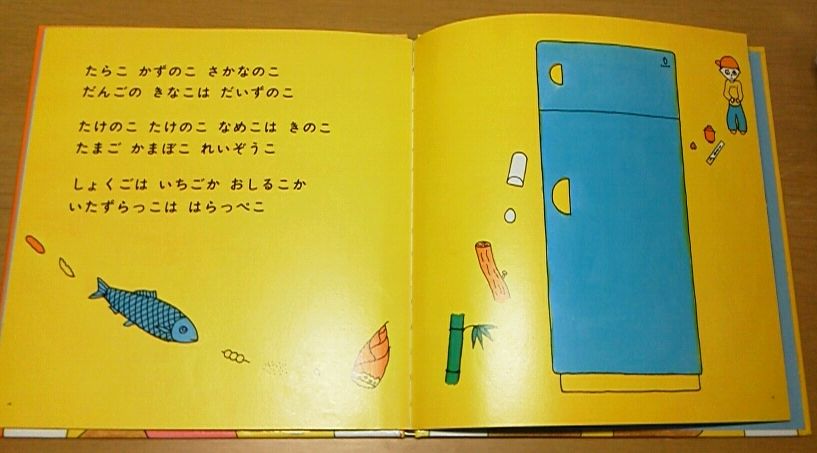 たらこ かずのこ さかなのこ
だんごの きなこは だいずのこ
たけのこ たけのこ なめこは きのこ
たまご かまぼこ れいぞうこ
しょくごは いちごか おしるこか
いたずらっこは はらっぺこ